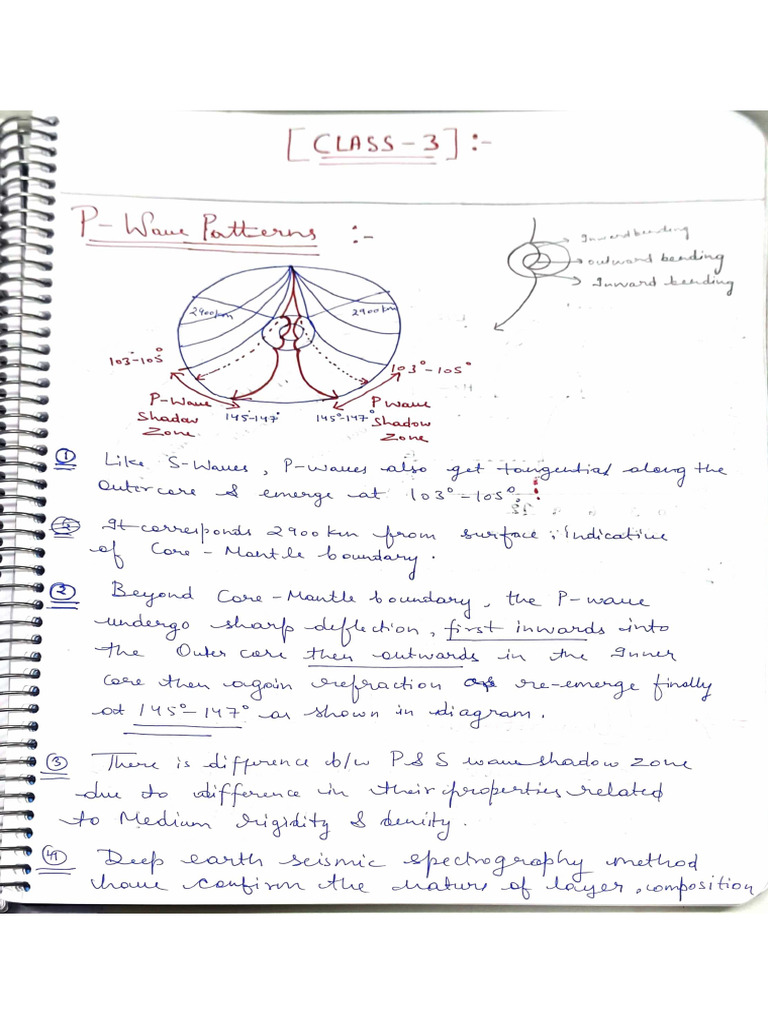 [CLASS-3] :-
P-Wave Patterns :-
Inward bending
outward bending
Inward bending
2900km
2900km
103°-105°
103°-105°
P-Wave
Shadow
Zone
145°-147°
145°-147°
P Wave
Shadow
Zone
① Like S-Waves, P-waves also get tangential along the
Outer core & emerge at 103°-105°.
It corresponds 2900 km from surface, indicative
of Core-Mantle boundary.
② Beyond Core-Mantle boundary, the P-wave
undergo sharp deflection, first inwards into
the Outer core then outwards in the Inner
core then again refraction re-emerge finally
at 145°-147° as shown in diagram.
③ There is difference b/w P & S wave shadow zone
due to difference in their properties related
to Medium rigidity & density.
④ Deep earth seismic spectrography method
have confirm the nature of layer, composition